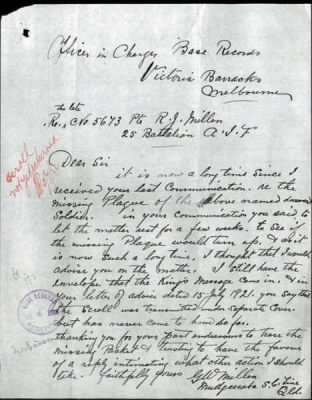 Officer in Charge Base Records
Victoria Barracks
Melbourne
the late
Re., No 5673 Pte R. J. Millen
25 Battalion A.I.F
Dear Sir
it is now a long time since I
received your last Communication. re the
missing Plaque of the above named deceased
Soldier. in your Communication you said to
let the matter rest for a few weeks. to see if
the missing Plaque would turn up. & as it
is now such a long time. I thought that I would
advise you on the matter. I still have the
envelope that the King's Message came in. & in
your letter of advice dated 15 July 1921. you say that
the Scroll was transmitted under separate Cover
but has never come to hand so far.
thanking you for your past endeavours to trace the
missing Packet & trusting to have the favour
of a reply intimating what other action I should
take. faithfully yours
Millen
Qld.
Scroll
not